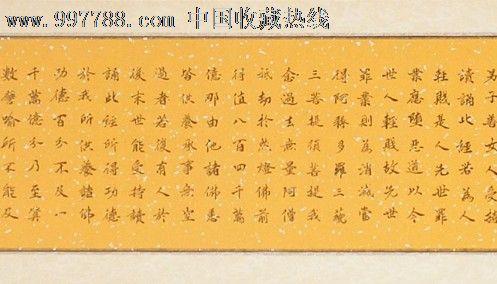 www.997788.com 中国收藏热线
男子善女人受持
讀誦此經若為人
輕賤是人先世罪
業應墮惡道以今
世人輕賤故先世
罪業則為消滅當
得阿耨多羅三藐
三菩提須菩提我
念過去無量阿僧
祇劫於然燈佛前
得值八百四千萬
億那由他諸佛悉
皆供養承事無空
過者若復有人於
後末世能受持讀
誦此經所得功德
於我所供養諸佛
功德百分不及一
千萬億分乃至算
數譬喻所不能及